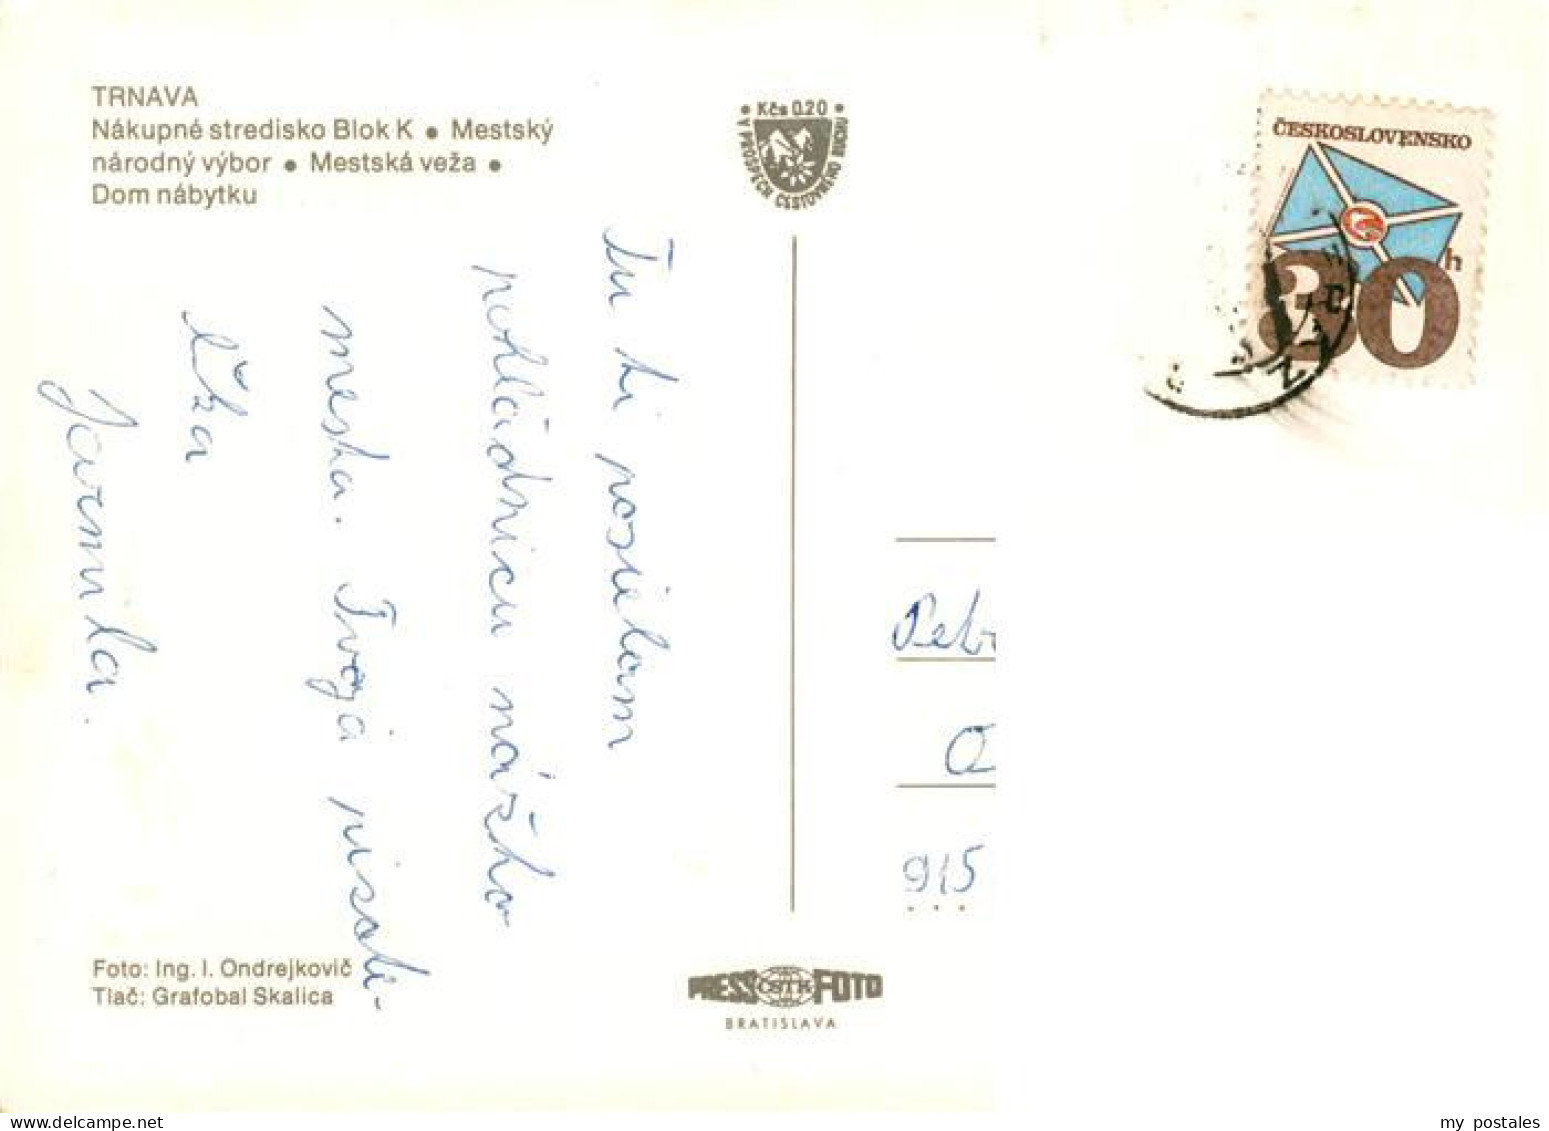 TRNAVA
Nákupné stredisko Blok K • Mestský
národný výbor • Mestská veža •
Dom nábytku
• Kčs 0.20 •
V PROSPECH CESTOVNÉHO RUCHU
ČESKOSLOVENSKO
30h
Tu ti posielam
pohládnicu nášho
mesta. Tvoja pisate-
lka
Jarmila.
Petr
915
Foto: Ing. I. Ondrejkovič
Tlač: Grafobal Skalica
PRESS ČSTK FOTO
BRATISLAVA
my postales